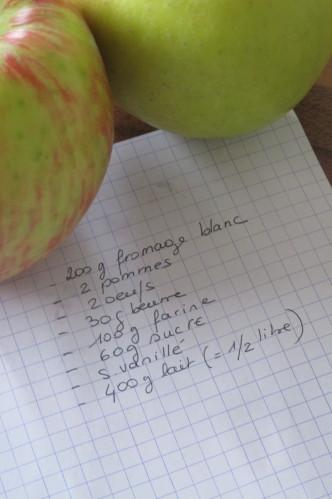 - 200 g fromage blanc
- 2 pommes
- 2 oeufs
- 30g beurre
- 100g farine
- 60g sucre
- s. vanillé
- 400g lait (= 1/2 litre)